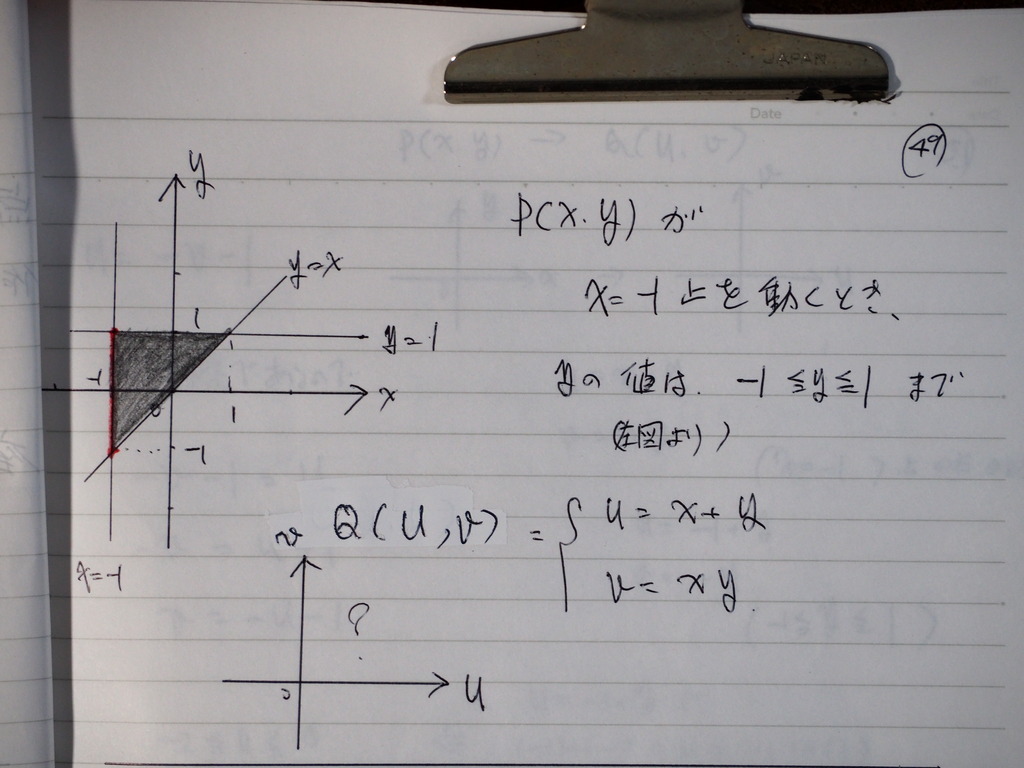 JAPAN
Date
49
P(x.y) が
x=-1 上を動くとき、
yの値は. -1≦y≦1 まで
(左図より)
y
y=x
1
y=1
-1
x
0
1
-1
x=-1
Q(u,v) = { u = x+y
v = xy.
v
?
0
u